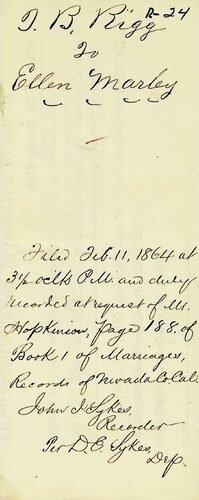 R-24
T. B. Rigg
To
Ellen Marley
Filed Feb. 11, 1864 at
3½ oclk P.M. and duly
recorded at request of M.
Hopkinson, page 188. of
Book 1 of Marriages,
Records of Nevada Co. Cal.
John I. Sykes,
Recorder
Per D. E. Sykes,
Dep.